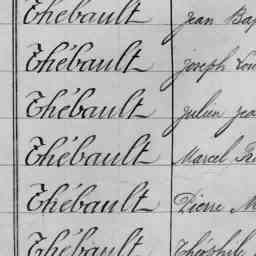 Thébault Jean Bap
Thébault Joseph Lou
Thébault Julien Jea
Thébault Marcel
Thébault Pierre M
Thébault Théophile